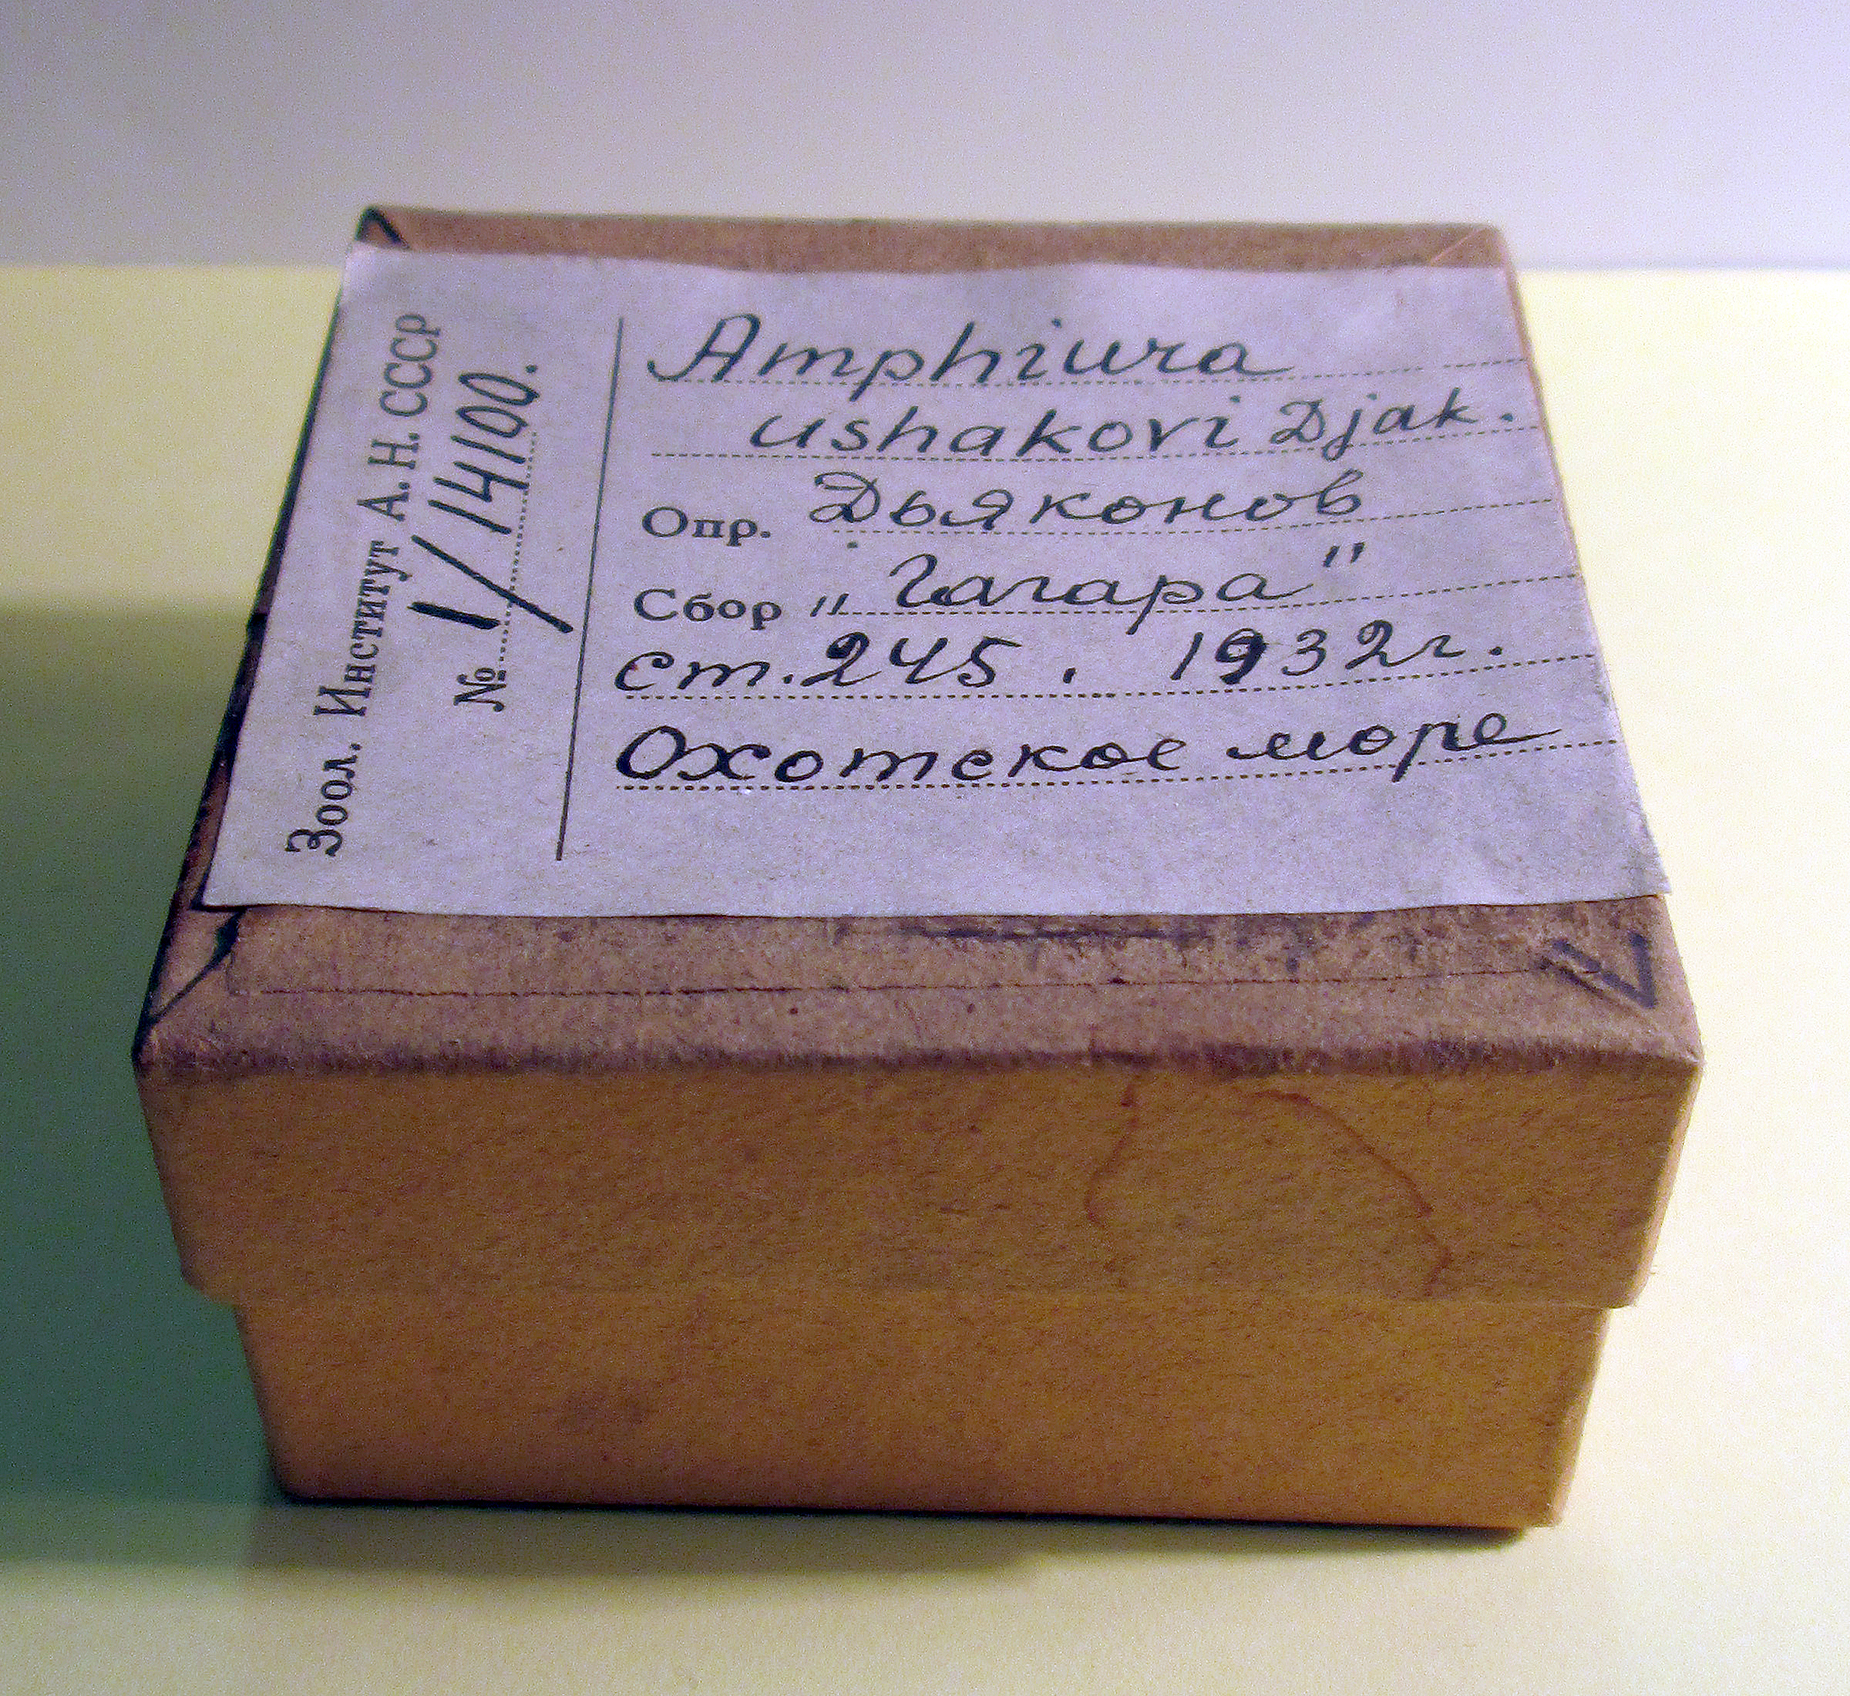 Зоол. Институт А. Н. СССР
№ 1/14100.
Amphiura
ushakovi Djak.
Опр. Дьяконов
Сбор „Гагара"
ст. 245. 1932г.
Охотское море